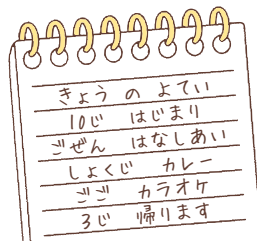 きょう の よてい
10じ はじまり
ごぜん はなしあい
しょくじ カレー
ごご カラオケ
3じ 帰ります